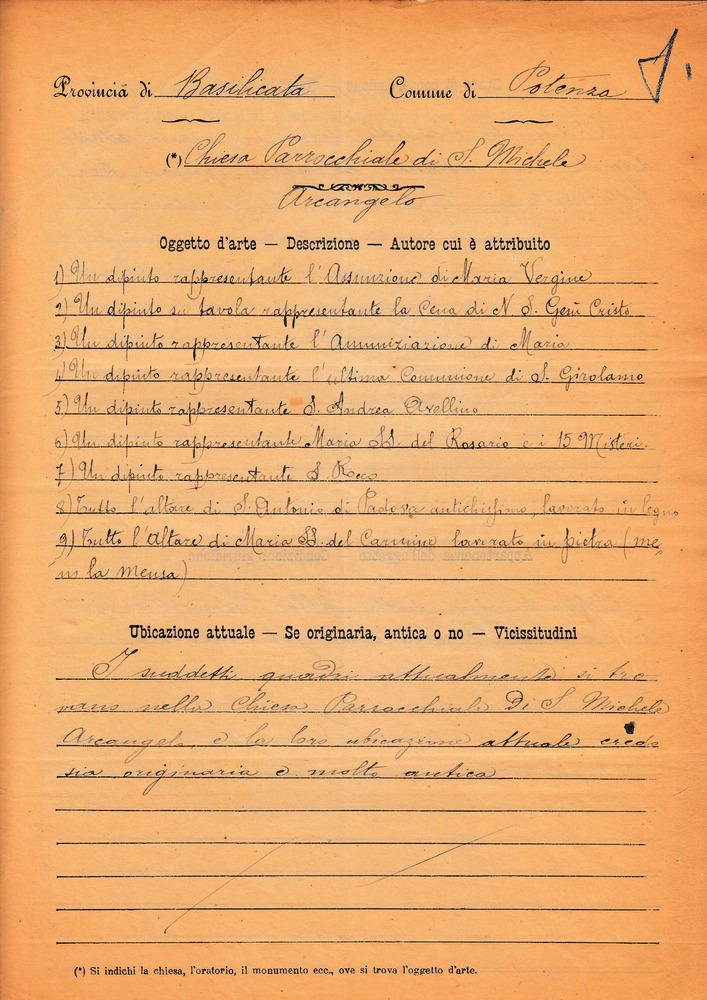 Provincia di Basilicata Comune di Potenza
(*) Chiesa Parrocchiale di S. Michele
Arcangelo
Oggetto d'arte — Descrizione — Autore cui è attribuito
1) Un dipinto rappresentante l'Assunzione di Maria Vergine
2) Un dipinto su tavola rappresentante la Cena di N. S. Gesù Cristo
3) Un dipinto rappresentante l'Annunziazione di Maria
4) Un dipinto rappresentante l'ultima Comunione di S. Girolamo
5) Un dipinto rappresentante S. Andrea Avellino
6) Un dipinto rappresentante Maria SS. del Rosario e i 15 Misteri.
7) Un dipinto rappresentante S. Rocco
8) Tutto l'altare di S. Antonio di Padova antichissimo, lavorato in legno
9) Tutto l'Altare di Maria SS. del Carmine lavorato in pietra (me-
no la mensa)
Ubicazione attuale — Se originaria, antica o no — Vicissitudini
I suddetti quadri attualmente si tro
vano nella Chiesa Parrocchiale Di S. Michele
Arcangelo, e la loro ubicazione attuale credo
sia originaria e molto antica
(*) Si indichi la chiesa, l'oratorio, il monumento ecc., ove si trova l'oggetto d'arte.